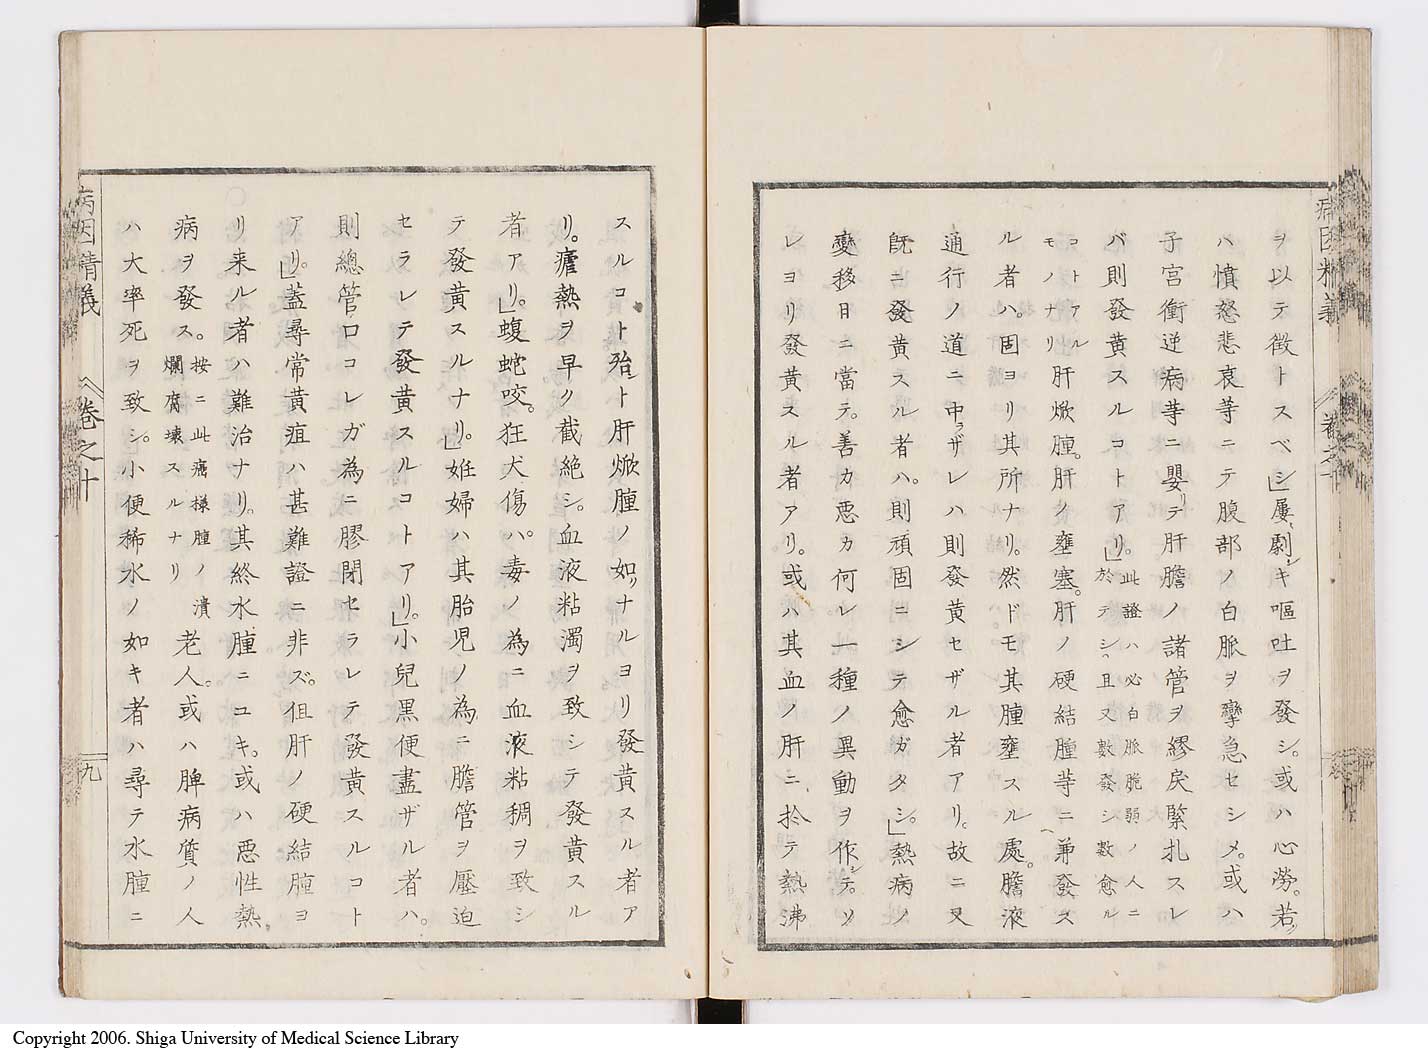 ヲ以テ徴トスベシ」屢、劇シキ嘔吐ヲ發シ。或ハ心勞。若ッ
ハ憤怒悲哀等ニテ腹部ノ白脈ヲ攣急セシメ。或ハ
子宮衝逆病等ニ嬰リテ肝膽ノ諸管ヲ繆戾緊扎スレ
バ則發黄スルコトアリ。」此證ハ必白脈脆弱ノ人ニ
於テシ。且又數發シ數愈ル
コトアル
モノナリ
肝焮腫。肝ノ壅塞。肝ノ硬結腫等ニ兼發ス
ル者ハ。固ヨリ其所ナリ。然ドモ其腫壅スル處。膽液
通行ノ道ニ中ラザレハ則發黄セザル者アリ。故ニ又
既ニ發黄スル者ハ。則頑固ニシテ愈ガタシ。」熱病ノ
變移日ニ當テ。善カ悪カ何レ一種ノ異動ヲ作シテ。ソ
レヨリ發黄スル者アリ。或ハ其血ノ肝ニ於テ熱沸
スルコト殆ント肝焮腫ノ如クナルヨリ發黄スル者ア
リ。瘧熱ヲ早ク截絶シ。血液粘濁ヲ致シテ發黄スル
者アリ。」蝮蛇咬。狂犬傷ハ。毒ノ為ニ血液粘稠ヲ致シ
テ發黄スルナリ。」妊婦ハ其胎児ノ為ニ膽管ヲ壓迫
セラレテ發黄スルコトアリ。」小兒黒便盡ザル者ハ。
則總管口コレガ為ニ膠閉セラレテ發黄スルコト
アリ。」蓋尋常黄疸ハ甚難證ニ非ズ。但肝ノ硬結腫ヨ
リ来ル者ハ難治ナリ。其終水腫ニユキ。或ハ悪性熱
病ヲ發ス。按ニ此痛様腫ノ潰
爛腐壊スルナリ
老人。或ハ脾病質ノ人
ハ大率死ヲ致シ。小便稀水ノ如キ者ハ尋テ水腫ニ
病因精義
卷之十
九
Copyright 2006. Shiga University of Medical Science Library